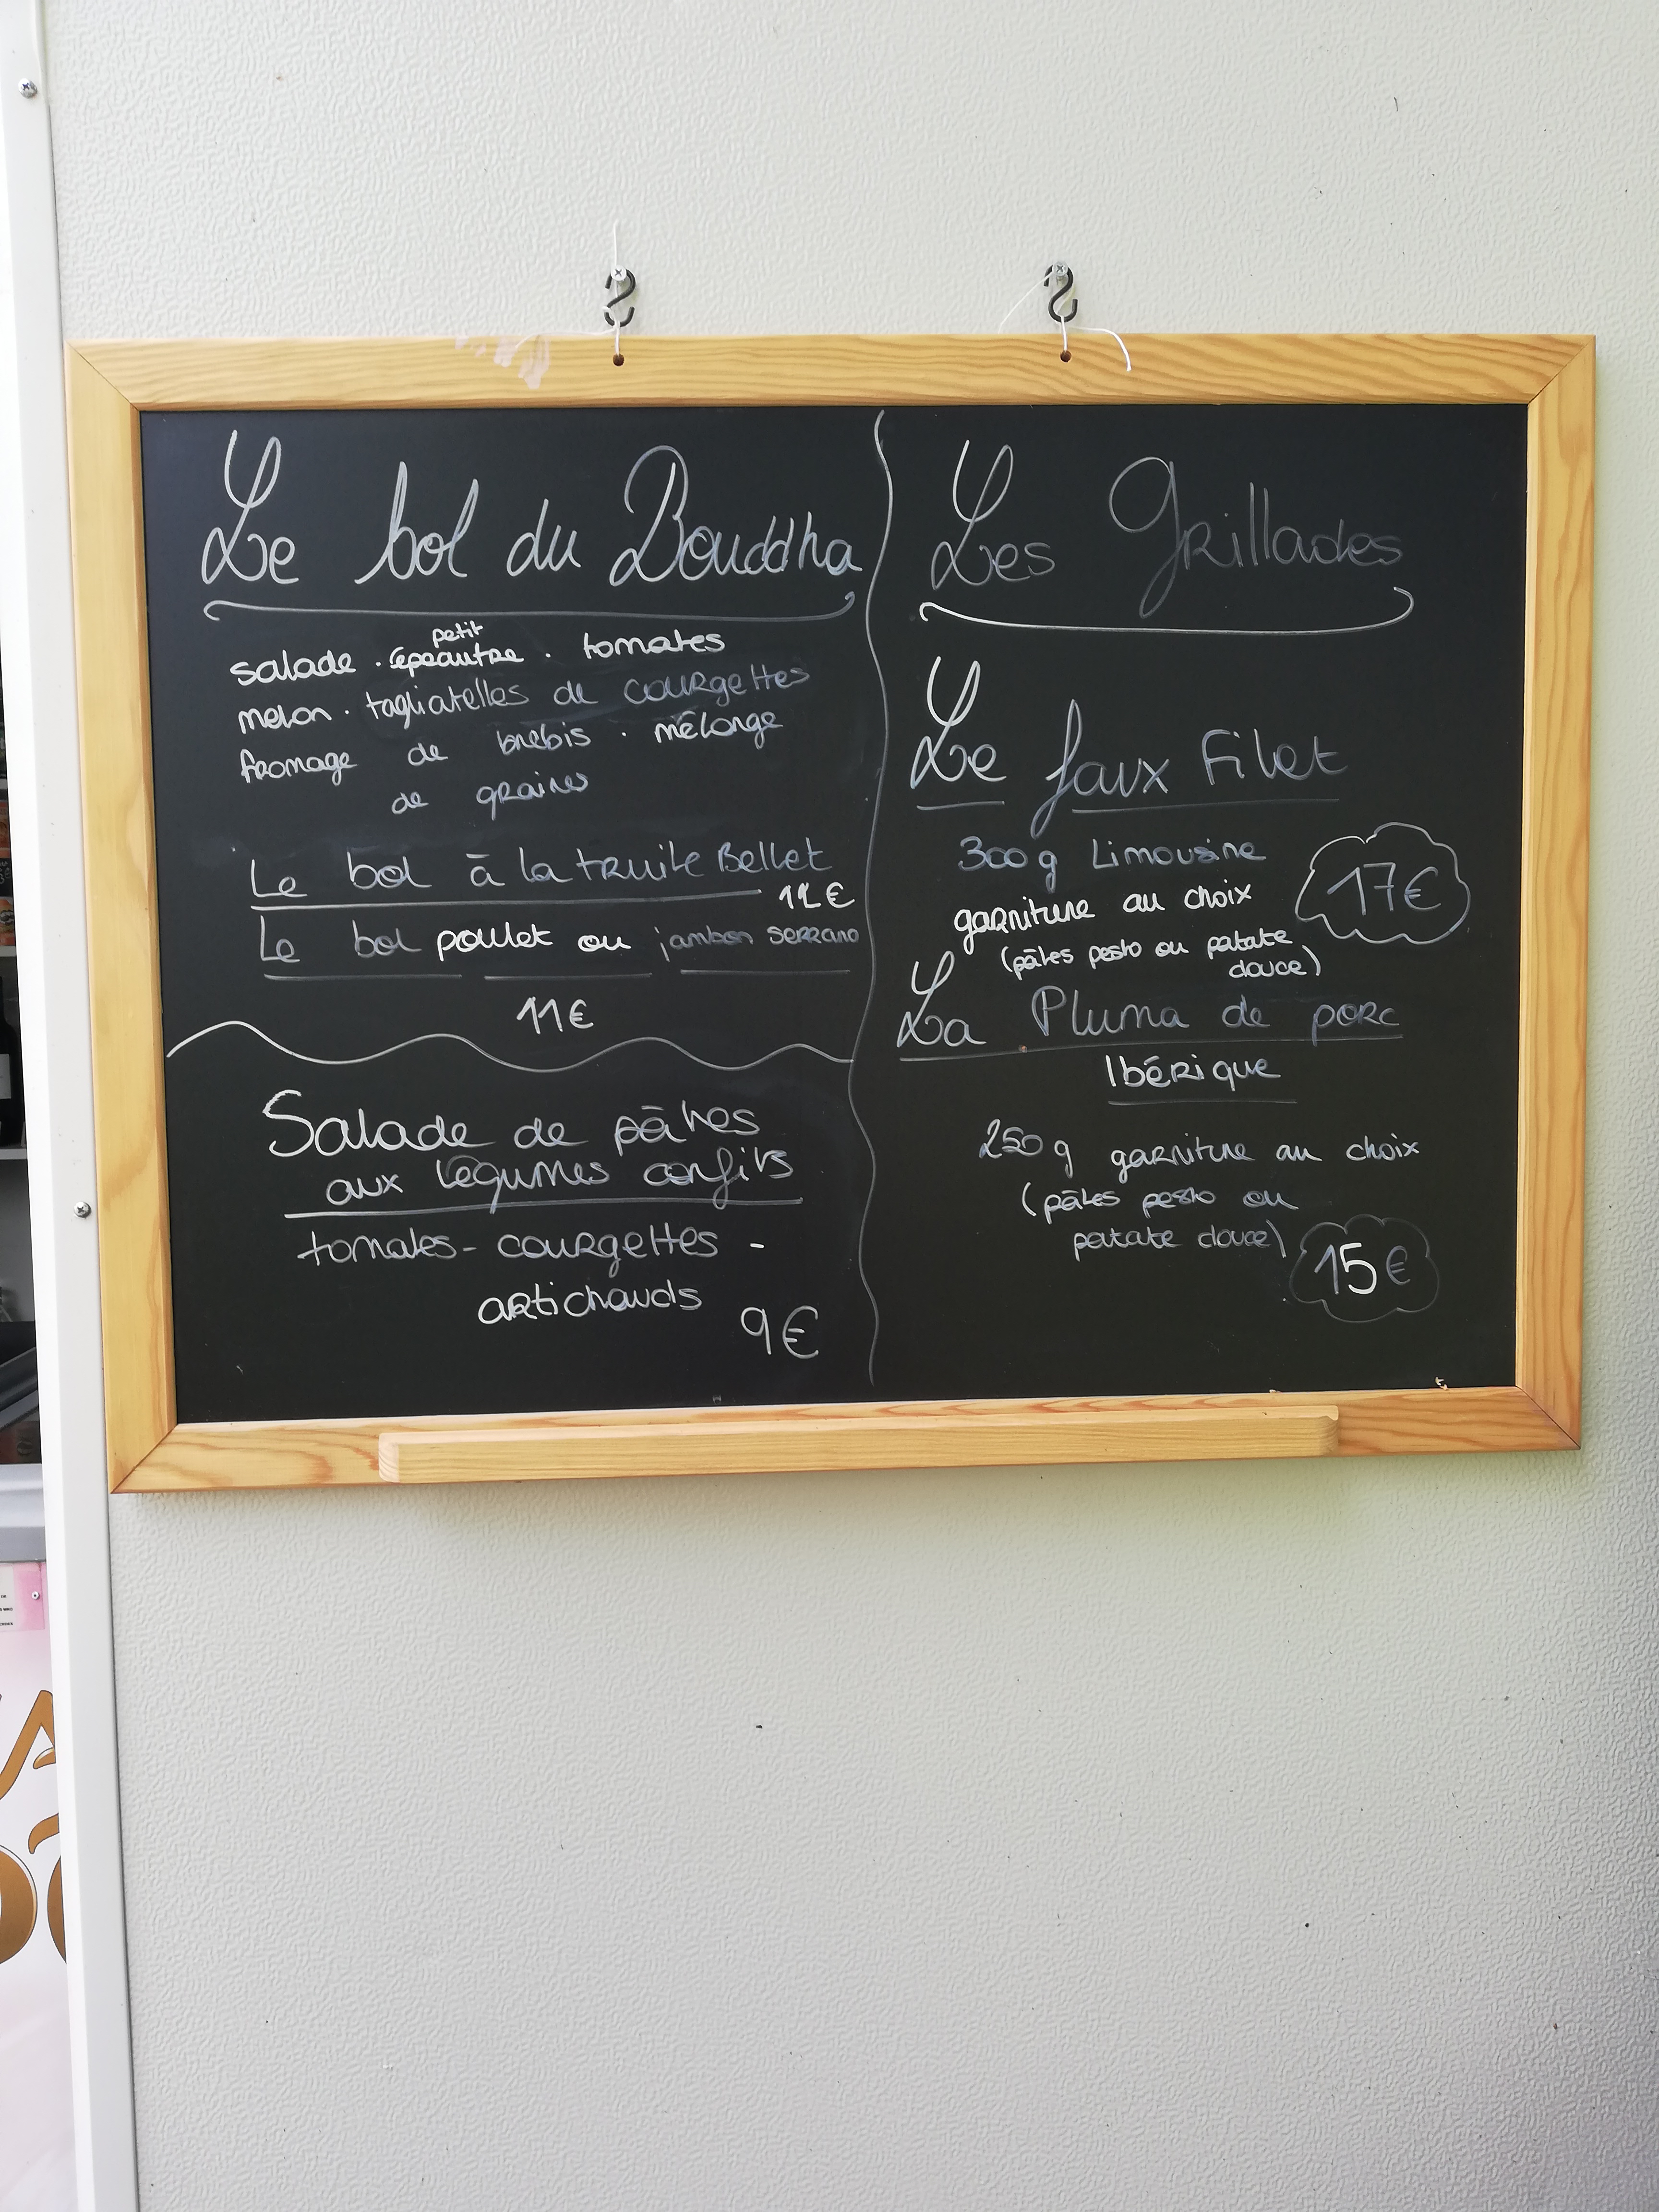 Le bol du Bouddha
petit
salade . épeautre . tomates
melon . tagliatelles de courgettes
fromage de brebis . mélange
de graines
Le bol à la truite Bellet
12€
Le bol poulet ou jambon serrano
11€
Salade de pâtes
aux légumes confits
tomates - courgettes -
artichauds
9€
Les Grillades
Le faux Filet
300g Limousine
17€
garniture au choix
(pâtes pesto ou patate
douce)
La Pluma de porc
Ibérique
250g garniture au choix
(pâtes pesto ou
patate douce)
15€